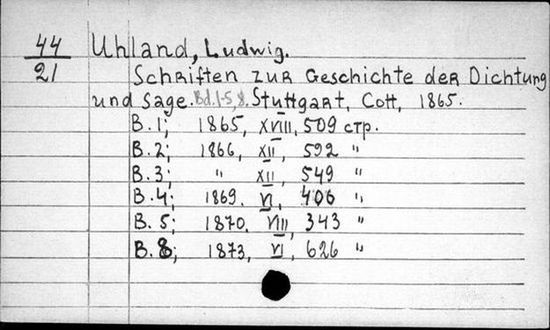 44
21
Uhland, Ludwig.
Schriften zur Geschichte der Dichtung
und Sage. Bd. 1-5, 8. Stuttgart, Cott, 1865.
B. 1; 1865, XVIII, 509 стр.
B. 2; 1866, XII, 592 "
B. 3; " XII, 549 "
B. 4; 1869, VI, 406 "
B. 5; 1870, VIII, 343 "
B. 8; 1873, VI, 626 "